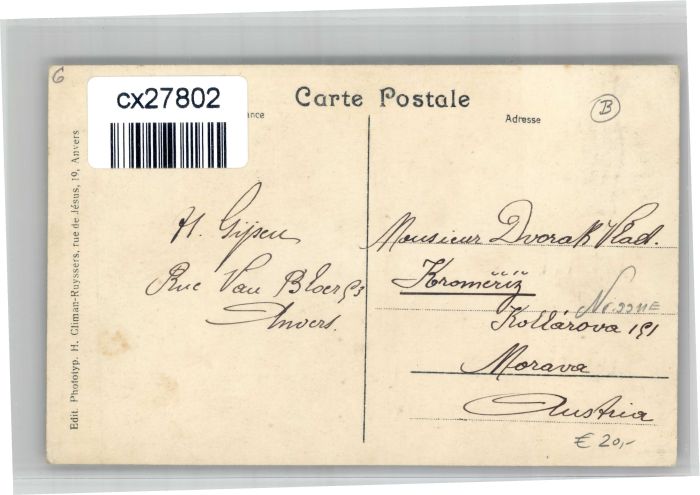 6
cx27802
Carte Postale
ance
Adresse
B
Edit. Phototyp. H. Climan-Ruyssers, rue de Jésus, 19, Anvers
H. Gijsen
Rue Van Bloer 53
Anvers.
Monsieur Dvorak Vlad.
Kroměříž
Kollárova 191
Morava
Austria
€ 20,-